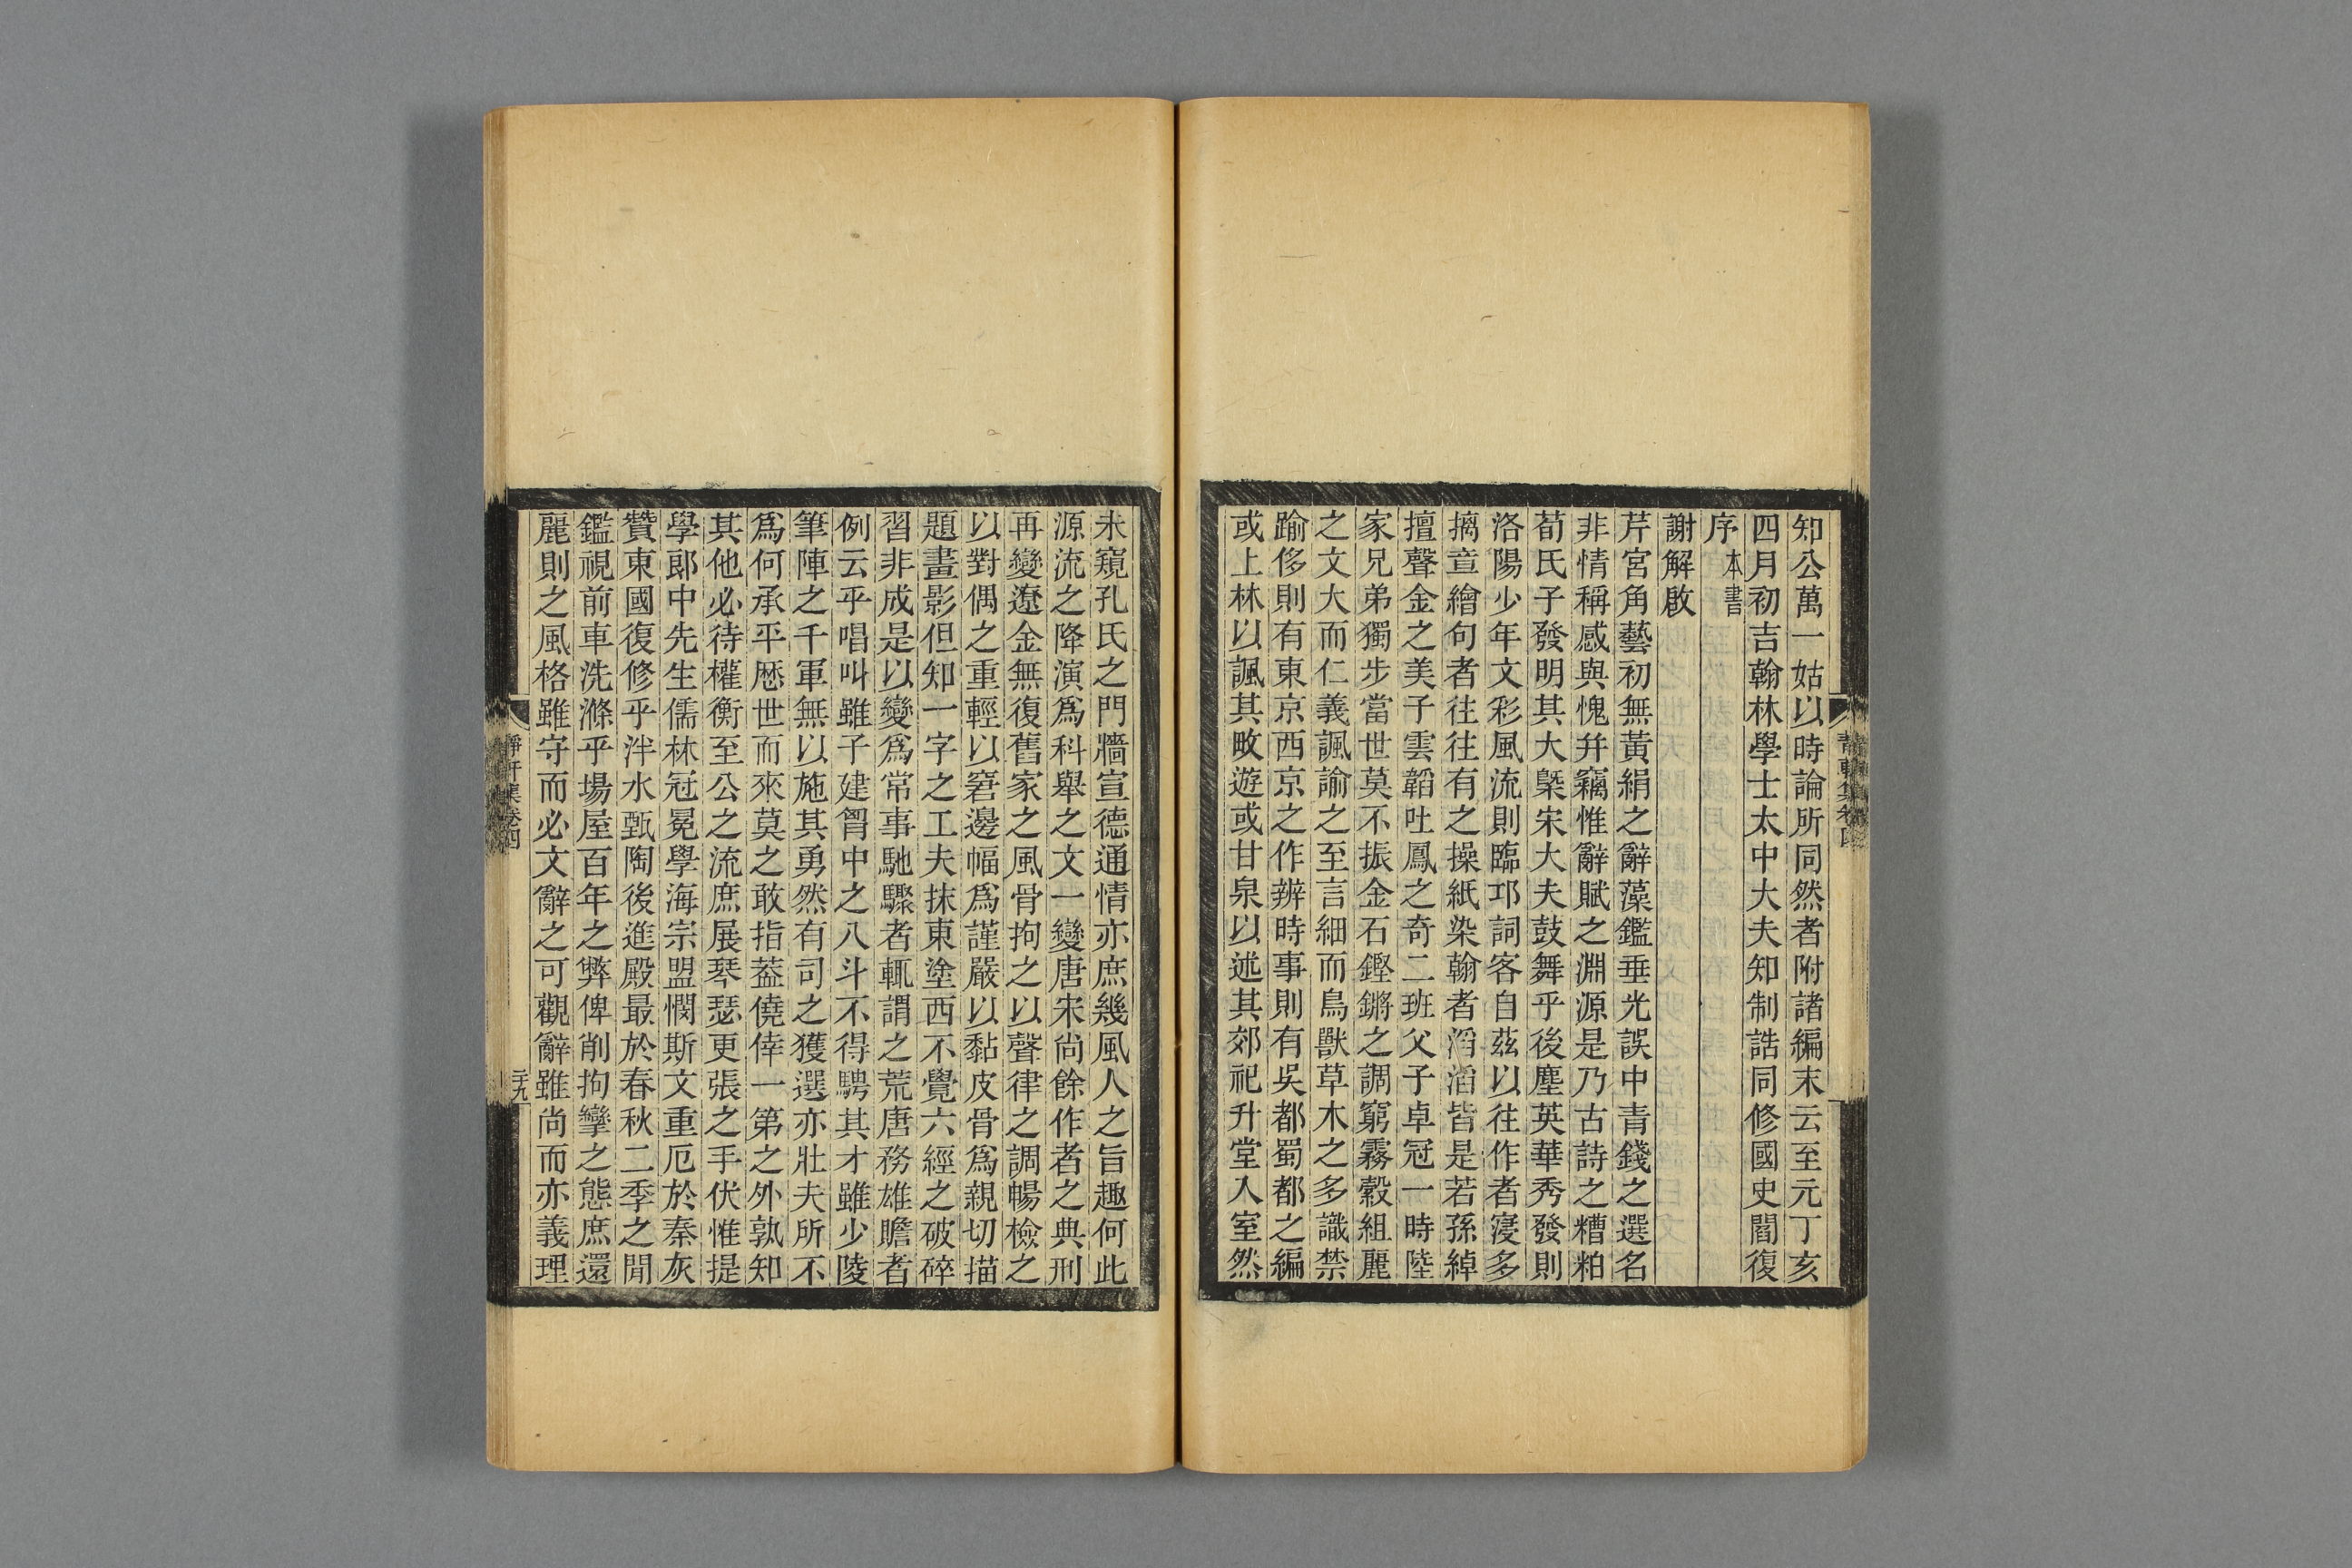 知公萬一姑以時論所同然者附諸編末云至元丁亥
四月初吉翰林學士太中大夫知制誥同修國史閻復
序本書
謝解啟
芹宮角藝初無黃絹之辭藻鑑垂光誤中青錢之選名
非情稱感與愧幷竊惟辭賦之淵源是乃古詩之糟粕
荀氏子發明其大槩宋大夫鼓舞乎後塵英華秀發則
洛陽少年文彩風流則臨邛詞客自茲以往作者寖多
摛章繪句者往往有之操紙染翰者滔滔皆是若孫綽
擅聲金之美子雲韜吐鳳之奇二班父子卓冠一時陸
家兄弟獨步當世莫不振金石鏗鏘之調窮霧縠組麗
之文大而仁義諷諭之至言細而鳥獸草木之多識禁
踰侈則有東京西京之作辨時事則有吳都蜀都之編
或上林以諷其畋遊或甘泉以述其郊祀升堂入室然
未窺孔氏之門牆宣德通情亦庶幾風人之旨趣何此
源流之降演爲科舉之文一變唐宋尚餘作者之典刑
再變遼金無復舊家之風骨拘之以聲律之調暢檢之
以對偶之重輕以窘邊幅爲謹嚴以黏皮骨爲親切描
題畫影但知一字之工夫抹東塗西不覺六經之破碎
習非成是以變爲常事馳驟者輒謂之荒唐務雄贍者
例云乎唱叫雖子建胷中之八斗不得騁其才雖少陵
筆陣之千軍無以施其勇然有司之獲選亦壯夫所不
爲何承平厯世而來莫之敢指葢僥倖一第之外孰知
其他必待權衡至公之流庶展琴瑟更張之手伏惟提
學郎中先生儒林冠冕學海宗盟憫斯文重厄於秦灰
贊東國復修乎泮水甄陶後進殿最於春秋二季之閒
鑑視前車洗滌乎場屋百年之弊俾削拘攣之態庶還
麗則之風格雖守而必文辭之可觀辭雖尚而亦義理
靜軒集卷四
二九